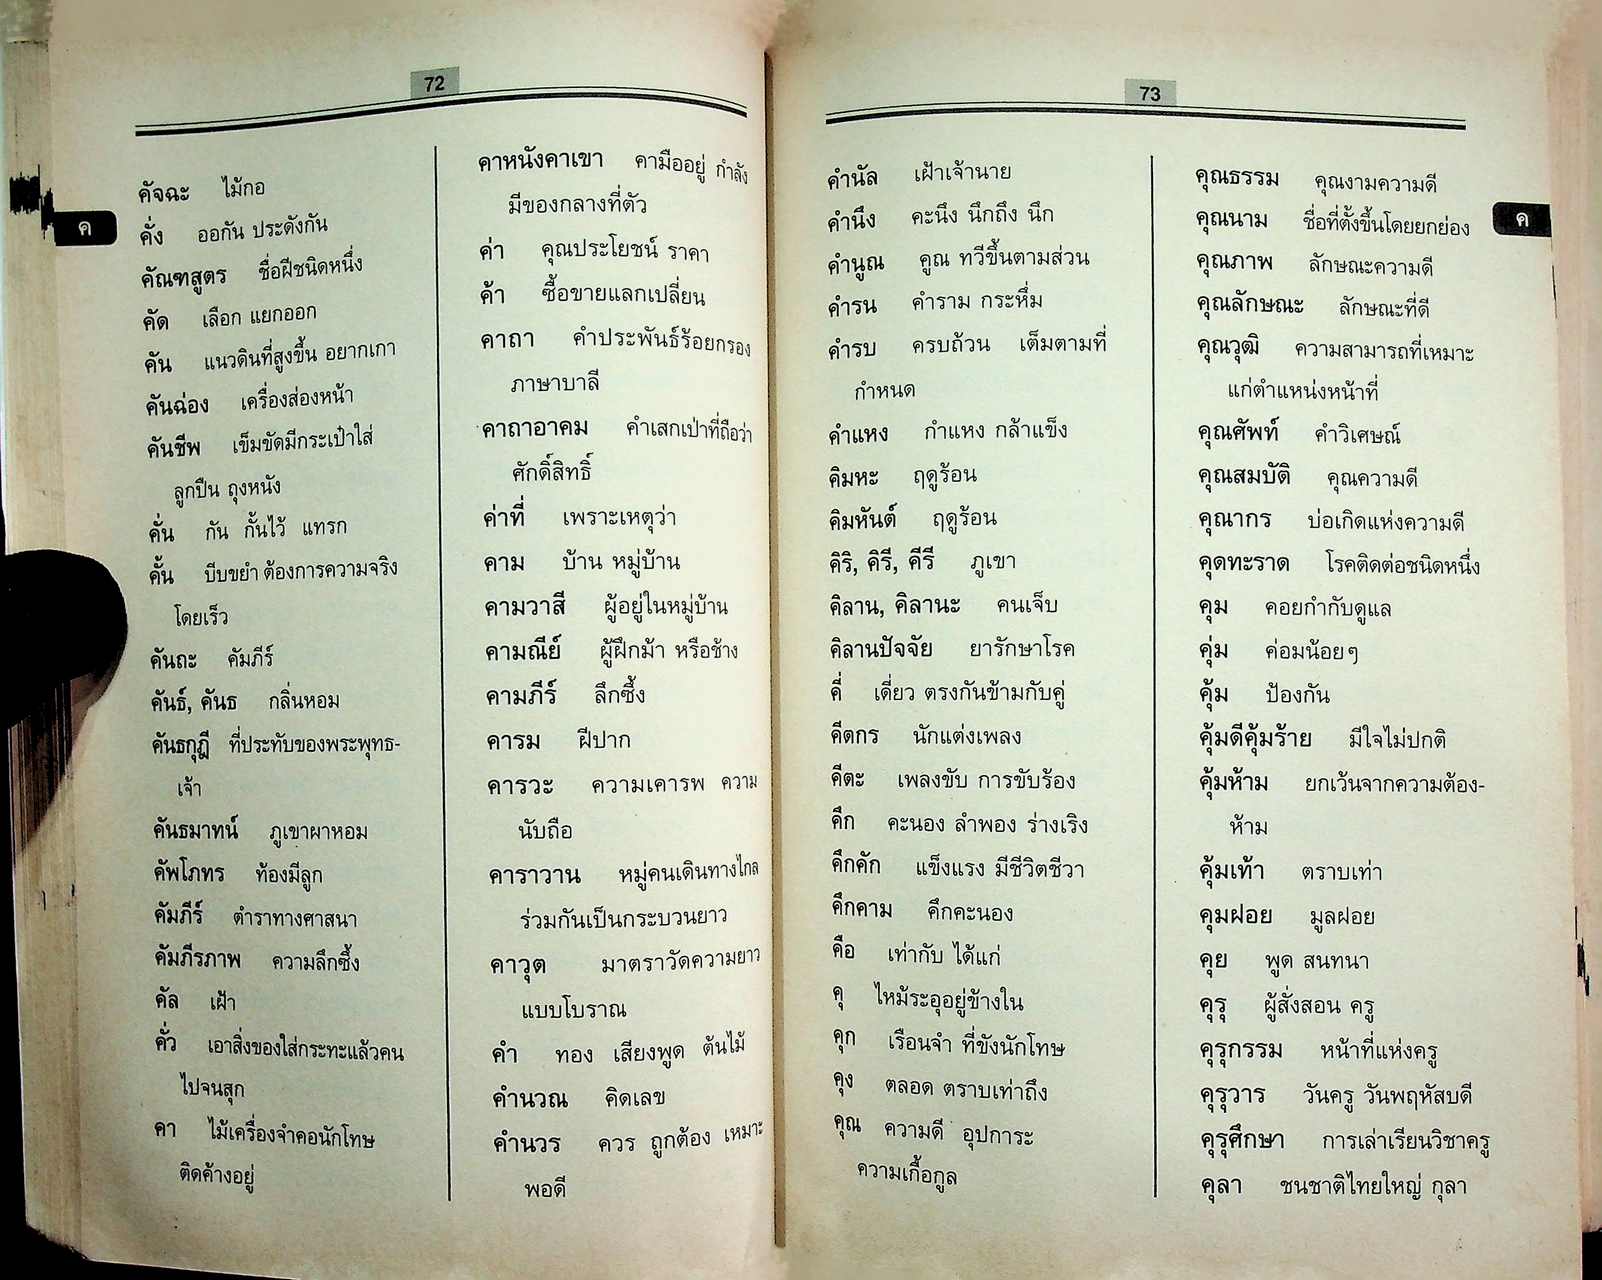 72
ค
คัจฉะ ไม้กอ
คั่ง ออกัน ประดังกัน
คัณฑสูตร ชื่อฝีชนิดหนึ่ง
คัด เลือก แยกออก
คัน แนวดินที่สูงขึ้น อยากเกา
คันฉ่อง เครื่องส่องหน้า
คันชีพ เข็มขัดมีกระเป๋าใส่
ลูกปืน ถุงหนัง
คั่น กัน กั้นไว้ แทรก
คั้น บีบขยำ ต้องการความจริง
โดยเร็ว
คันถะ คัมภีร์
คันธ์, คันธ กลิ่นหอม
คันธกุฎี ที่ประทับของพระพุทธ-
เจ้า
คันธมาทน์ ภูเขาผาหอม
คัพโภทร ท้องมีลูก
คัมภีร์ ตำราทางศาสนา
คัมภีรภาพ ความลึกซึ้ง
คัล เฝ้า
คั่ว เอาสิ่งของใส่กระทะแล้วคน
ไปจนสุก
คา ไม้เครื่องจำคอนักโทษ
ติดค้างอยู่
คาหนังคาเขา คามืออยู่ กำลัง
มีของกลางที่ตัว
ค่า คุณประโยชน์ ราคา
ค้า ซื้อขายแลกเปลี่ยน
คาถา คำประพันธ์ร้อยกรอง
ภาษาบาลี
คาถาอาคม คำเสกเป่าที่ถือว่า
ศักดิ์สิทธิ์
ค่าที่ เพราะเหตุว่า
คาม บ้าน หมู่บ้าน
คามวาสี ผู้อยู่ในหมู่บ้าน
คามณีย์ ผู้ฝึกม้า หรือช้าง
คามภีร์ ลึกซึ้ง
คารม ฝีปาก
คารวะ ความเคารพ ความ
นับถือ
คาราวาน หมู่คนเดินทางไกล
ร่วมกันเป็นกระบวนยาว
คาวุต มาตราวัดความยาว
แบบโบราณ
คำ ทอง เสียงพูด ต้นไม้
คำนวณ คิดเลข
คำนวร ควร ถูกต้อง เหมาะ
พอดี
73
ค
คำนัล เฝ้าเจ้านาย
คำนึง คะนึง นึกถึง นึก
คำนูณ คูณ ทวีขึ้นตามส่วน
คำรน คำราม กระหึ่ม
คำรบ ครบถ้วน เต็มตามที่
กำหนด
คำแหง กำแหง กล้าแข็ง
คิมหะ ฤดูร้อน
คิมหันต์ ฤดูร้อน
คิริ, คิรี, คีรี ภูเขา
คิลาน, คิลานะ คนเจ็บ
คิลานปัจจัย ยารักษาโรค
คี่ เดี่ยว ตรงกันข้ามกับคู่
คีตกร นักแต่งเพลง
คีตะ เพลงขับ การขับร้อง
คึก คะนอง ลำพอง ร่างเริง
คึกคัก แข็งแรง มีชีวิตชีวา
คึกคาม คึกคะนอง
คือ เท่ากับ ได้แก่
คุ ไหม้ระอุอยู่ข้างใน
คุก เรือนจำ ที่ขังนักโทษ
คุง ตลอด ตราบเท่าถึง
คุณ ความดี อุปการะ
ความเกื้อกูล
คุณธรรม คุณงามความดี
คุณนาม ชื่อที่ตั้งขึ้นโดยยกย่อง
คุณภาพ ลักษณะความดี
คุณลักษณะ ลักษณะที่ดี
คุณวุฒิ ความสามารถที่เหมาะ
แก่ตำแหน่งหน้าที่
คุณศัพท์ คำวิเศษณ์
คุณสมบัติ คุณความดี
คุณากร บ่อเกิดแห่งความดี
คุดทะราด โรคติดต่อชนิดหนึ่ง
คุม คอยกำกับดูแล
คุ่ม ค่อมน้อยๆ
คุ้ม ป้องกัน
คุ้มดีคุ้มร้าย มีใจไม่ปกติ
คุ้มห้าม ยกเว้นจากความต้อง-
ห้าม
คุ้มเท้า ตราบเท่า
คุมฝอย มูลฝอย
คุย พูด สนทนา
คุรุ ผู้สั่งสอน ครู
คุรุกรรม หน้าที่แห่งครู
คุรุวาร วันครู วันพฤหัสบดี
คุรุศึกษา การเล่าเรียนวิชาครู
คุลา ชนชาติไทยใหญ่ กุลา